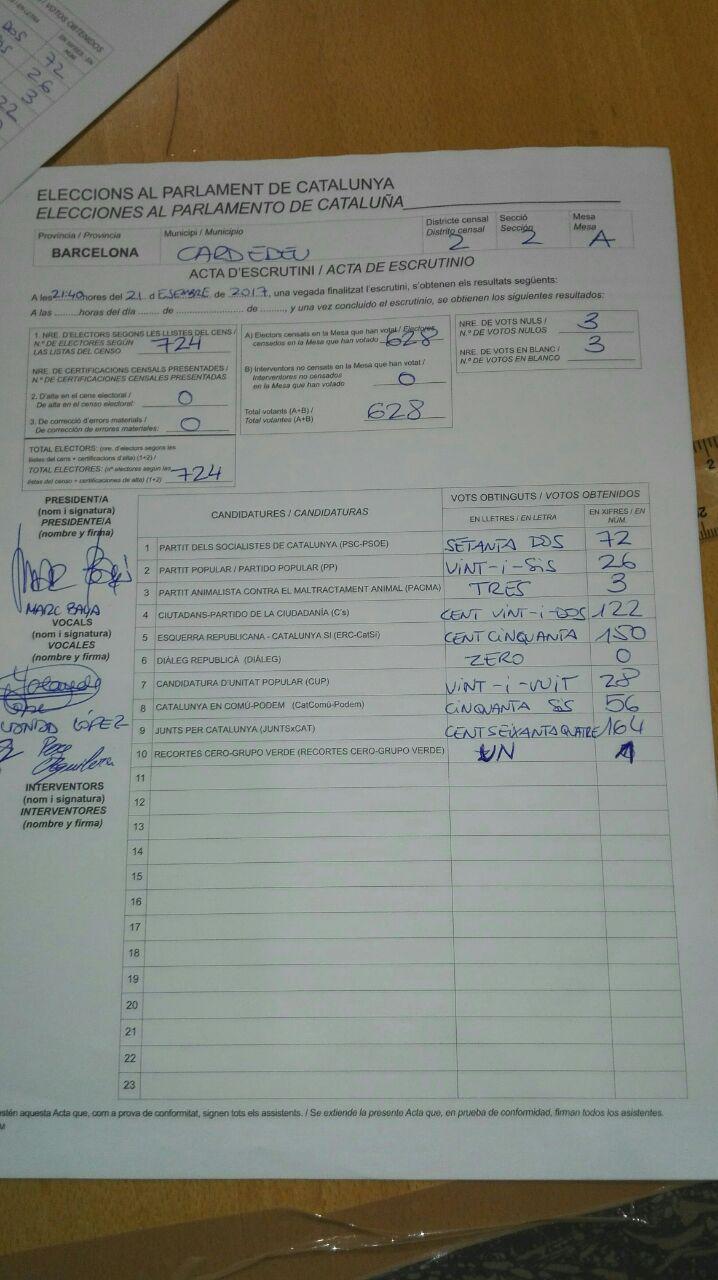 VOTOS OBTENIDOS
DOS
72
26
3
22
ELECCIONS AL PARLAMENT DE CATALUNYA
ELECCIONES AL PARLAMENTO DE CATALUÑA
Província / Provincia
BARCELONA
Municipi / Municipio
CARDEDEU
Districte censal
Distrito censal
2
Secció
Sección
2
Mesa
Mesa
A
ACTA D'ESCRUTINI / ACTA DE ESCRUTINIO
A les 21:40 hores del 21 d ESEMBRE de 2017, una vegada finalitzat l'escrutini, s'obtenen els resultats següents:
A las ........horas del día ....... de ........................ de ........, y una vez concluido el escrutinio, se obtienen los siguientes resultados:
1. NRE. D'ELECTORS SEGONS LES LLISTES DEL CENS /
N.º DE ELECTORES SEGÚN
LAS LISTAS DEL CENSO 724
NRE. DE CERTIFICACIONS CENSALS PRESENTADES /
N.º DE CERTIFICACIONES CENSALES PRESENTADAS
2. D'alta en el cens electoral /
De alta en el censo electoral: 0
3. De correcció d'errors materials /
De corrección de errores materiales: 0
TOTAL ELECTORS: (nre. d'electors segons les
llistes del cens + certificacions d'alta) (1+2) /
TOTAL ELECTORES: (nº electores según las
listas del censo + certificaciones de alta) (1+2) 724
A) Electors censats en la Mesa que han votat / Electores
censados en la Mesa que han votado 628
B) Interventors no censats en la Mesa que han votat /
Interventores no censados
en la Mesa que han votado 0
Total votants (A+B) /
Total votantes (A+B) 628
NRE. DE VOTS NULS /
N.º DE VOTOS NULOS 3
NRE. DE VOTS EN BLANC /
N.º DE VOTOS EN BLANCO 3
PRESIDENT/A
(nom i signatura)
PRESIDENTE/A
(nombre y firma)
MARC BAYA
VOCALS
(nom i signatura)
VOCALES
(nombre y firma)
LÓPEZ
INTERVENTORS
(nom i signatura)
INTERVENTORES
(nombre y firma)
CANDIDATURES / CANDIDATURAS
VOTS OBTINGUTS / VOTOS OBTENIDOS
EN LLETRES / EN LETRA
EN XIFRES / EN NÚM.
1 PARTIT DELS SOCIALISTES DE CATALUNYA (PSC-PSOE) SETANTA DOS 72
2 PARTIT POPULAR / PARTIDO POPULAR (PP) VINT-i-SIS 26
3 PARTIT ANIMALISTA CONTRA EL MALTRACTAMENT ANIMAL (PACMA) TRES 3
4 CIUTADANS-PARTIDO DE LA CIUDADANÍA (C's) CENT VINT-i-DOS 122
5 ESQUERRA REPUBLICANA - CATALUNYA SI (ERC-CatSí) CENT CINQUANTA 150
6 DIÀLEG REPUBLICÀ (DIÀLEG) ZERO 0
7 CANDIDATURA D'UNITAT POPULAR (CUP) VINT-i-VUIT 28
8 CATALUNYA EN COMÚ-PODEM (CatComú-Podem) CINQUANTA SIS 56
9 JUNTS PER CATALUNYA (JUNTSxCAT) CENT SEIXANTA QUATRE 164
10 RECORTES CERO-GRUPO VERDE (RECORTES CERO-GRUPO VERDE) UN 1
11
12
13
14
15
16
17
18
19
20
21
22
23
estén aquesta Acta que, com a prova de conformitat, signen tots els assistents. / Se extiende la presente Acta que, en prueba de conformidad, firman todos los asistentes.